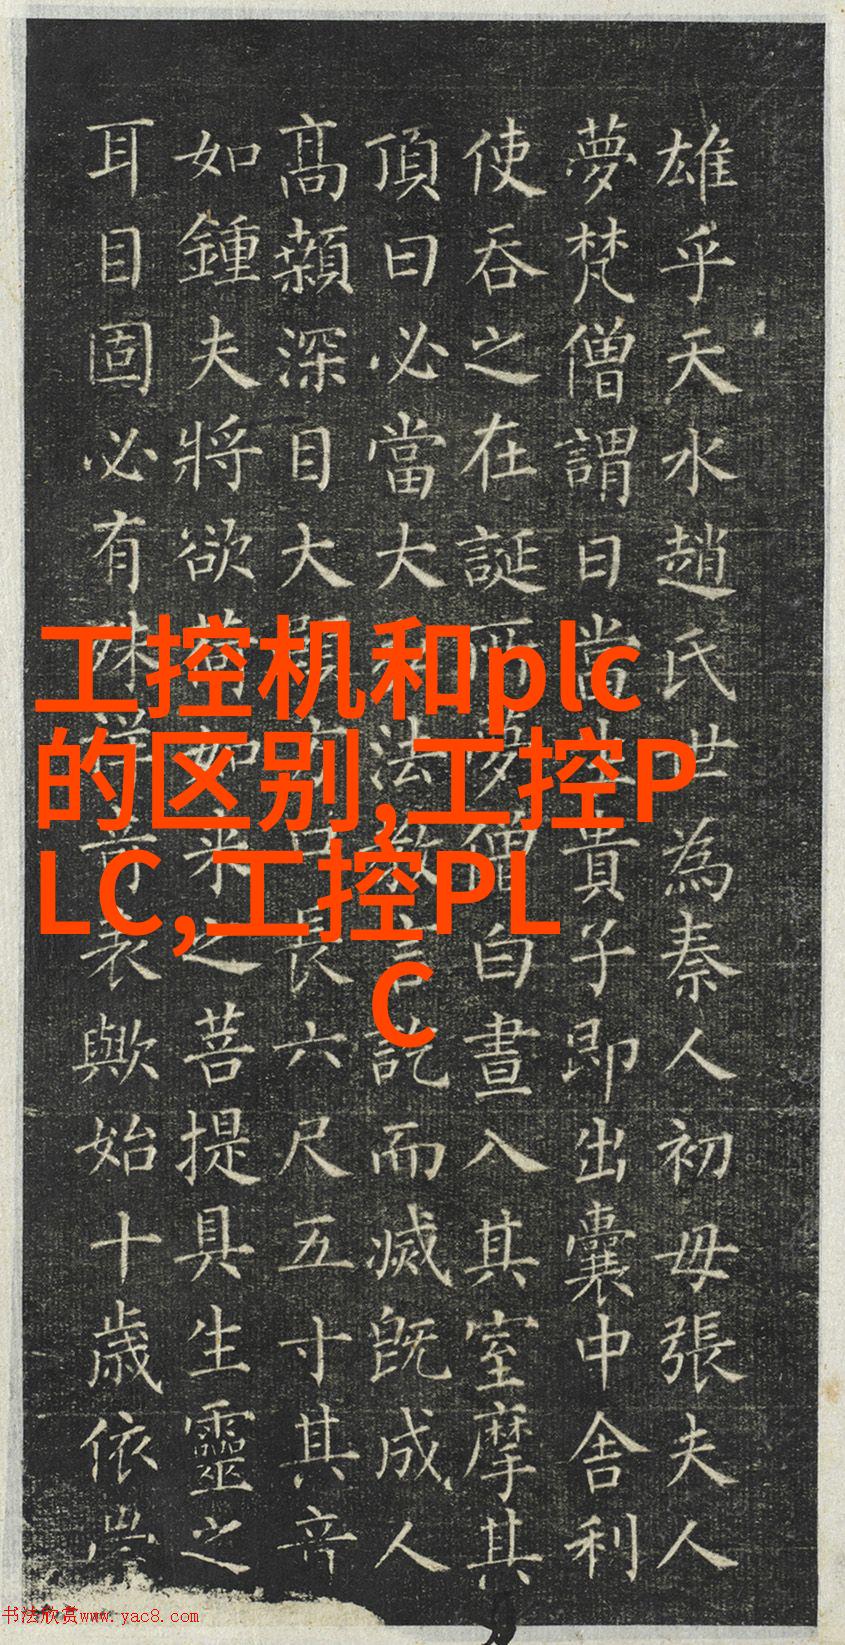 雄乎天水趙氏世為秦人初母張夫人
夢梵僧謂曰當生貴子即出囊中舍利
使吞之在誕所夢僧白晝入其室摩其
頂曰必當大法教言訖而滅既成人
高顙深目大頤方口長六尺五寸其音
如鍾夫將欲荷如來之菩提具生靈之
耳目固必有殊祥奇表歟始十歲依
工控机和plc
的区别,工控P
LC,工控PL
C
书法欣赏www.yac8.com